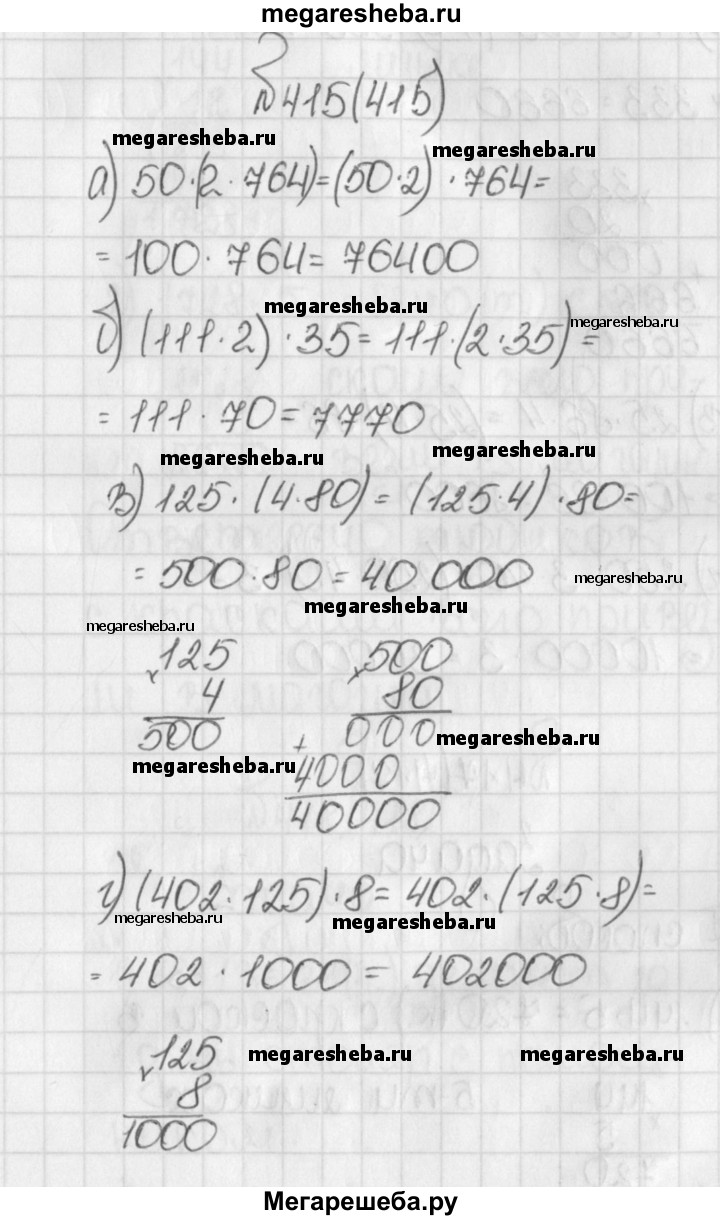 megaresheba.ru
№415(415)
megaresheba.ru megaresheba.ru
а) 50·(2·764)=(50·2)·764=
= 100·764= 76400
megaresheba.ru megaresheba.ru
б) (111·2)·35= 111·(2·35)=
= 111·70= 7770
megaresheba.ru megaresheba.ru
в) 125·(4·80)= (125·4)·80=
= 500·80= 40 000
megaresheba.ru
megaresheba.ru
megaresheba.ru
×125 ×500
4 80
500 + 000
megaresheba.ru
megaresheba.ru
4000
40000
г) (402·125)·8= 402·(125·8)=
megaresheba.ru megaresheba.ru
= 402·1000= 402000
×125
megaresheba.ru megaresheba.ru
8
1000
Мегарешеба.ру